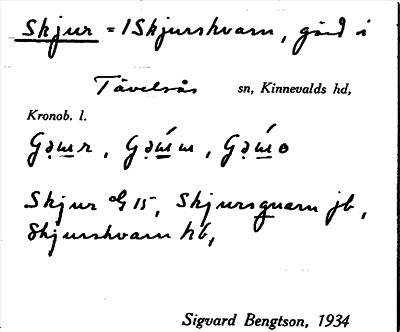 Skjur = 1 Skjurshvarn, gård i
Tävelsås sn, Kinnevalds hd,
Kronob. l.
Skjur OG 15, Skjursquarn jb,
Skjurshvarn hb,
Sigvard Bengtson, 1934